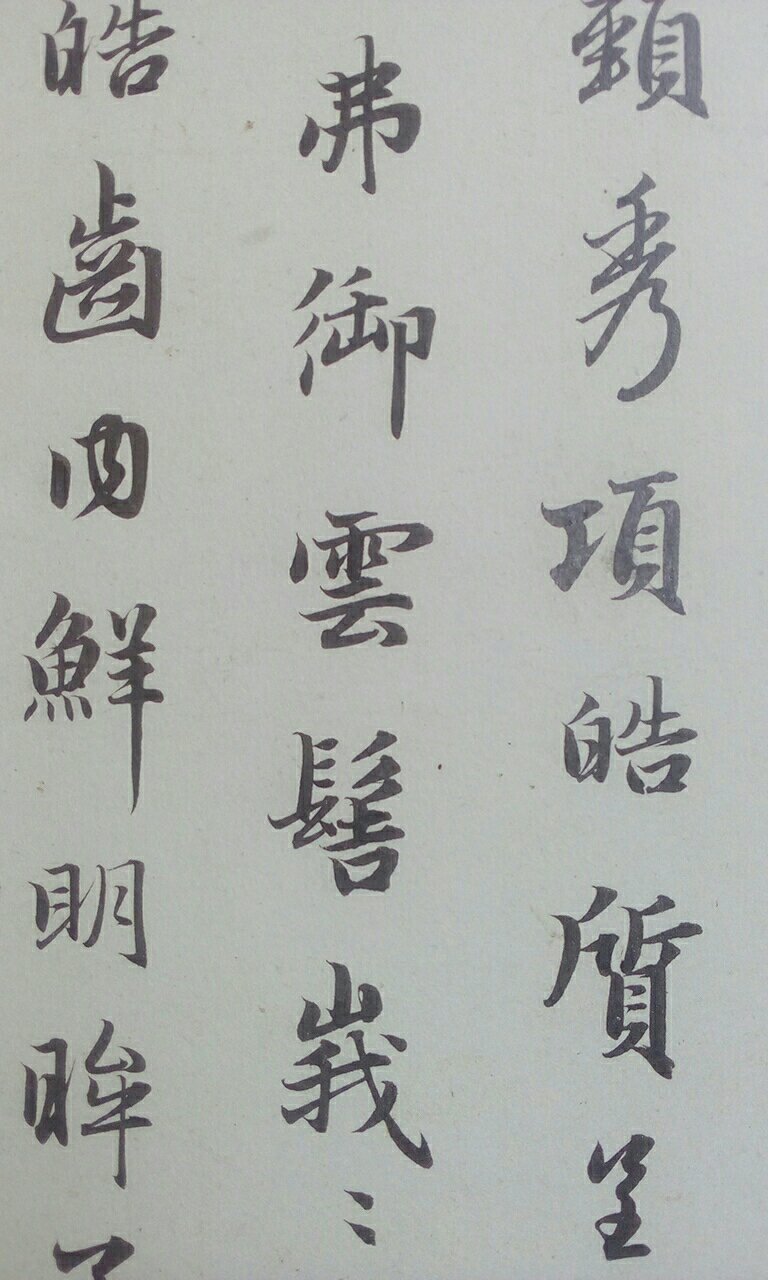 頸秀項皓質呈
弗御雲髻峩〻
皓齒内鮮明眸